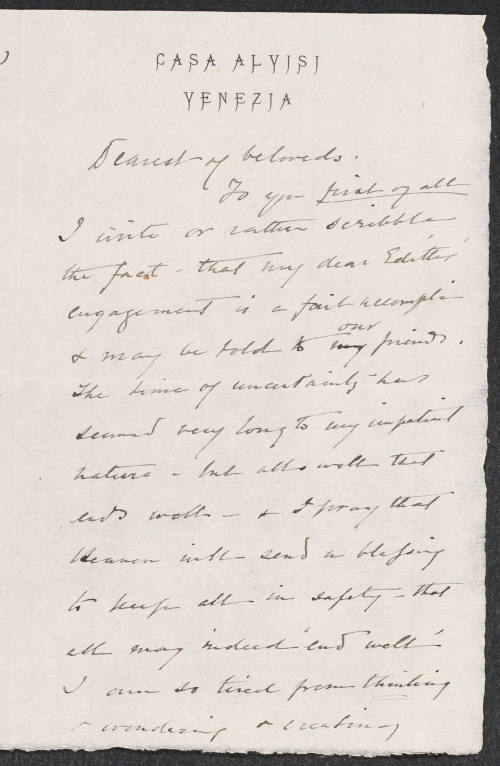 CASA ALVISI
VENEZIA
Dearest of beloveds.
To you first of all
I write or rather scribble
the fact - that my dear Edith's
engagement is a fait accompli
& may be told to my our friends.
The time of uncertainty has
seemed very long to my impatient
nature - but all's well that
ends well - & I pray that
Heaven will send a blessing
to keep all in safety - that
all may indeed "end well"
I am so tired from thinking
& wondering & creating